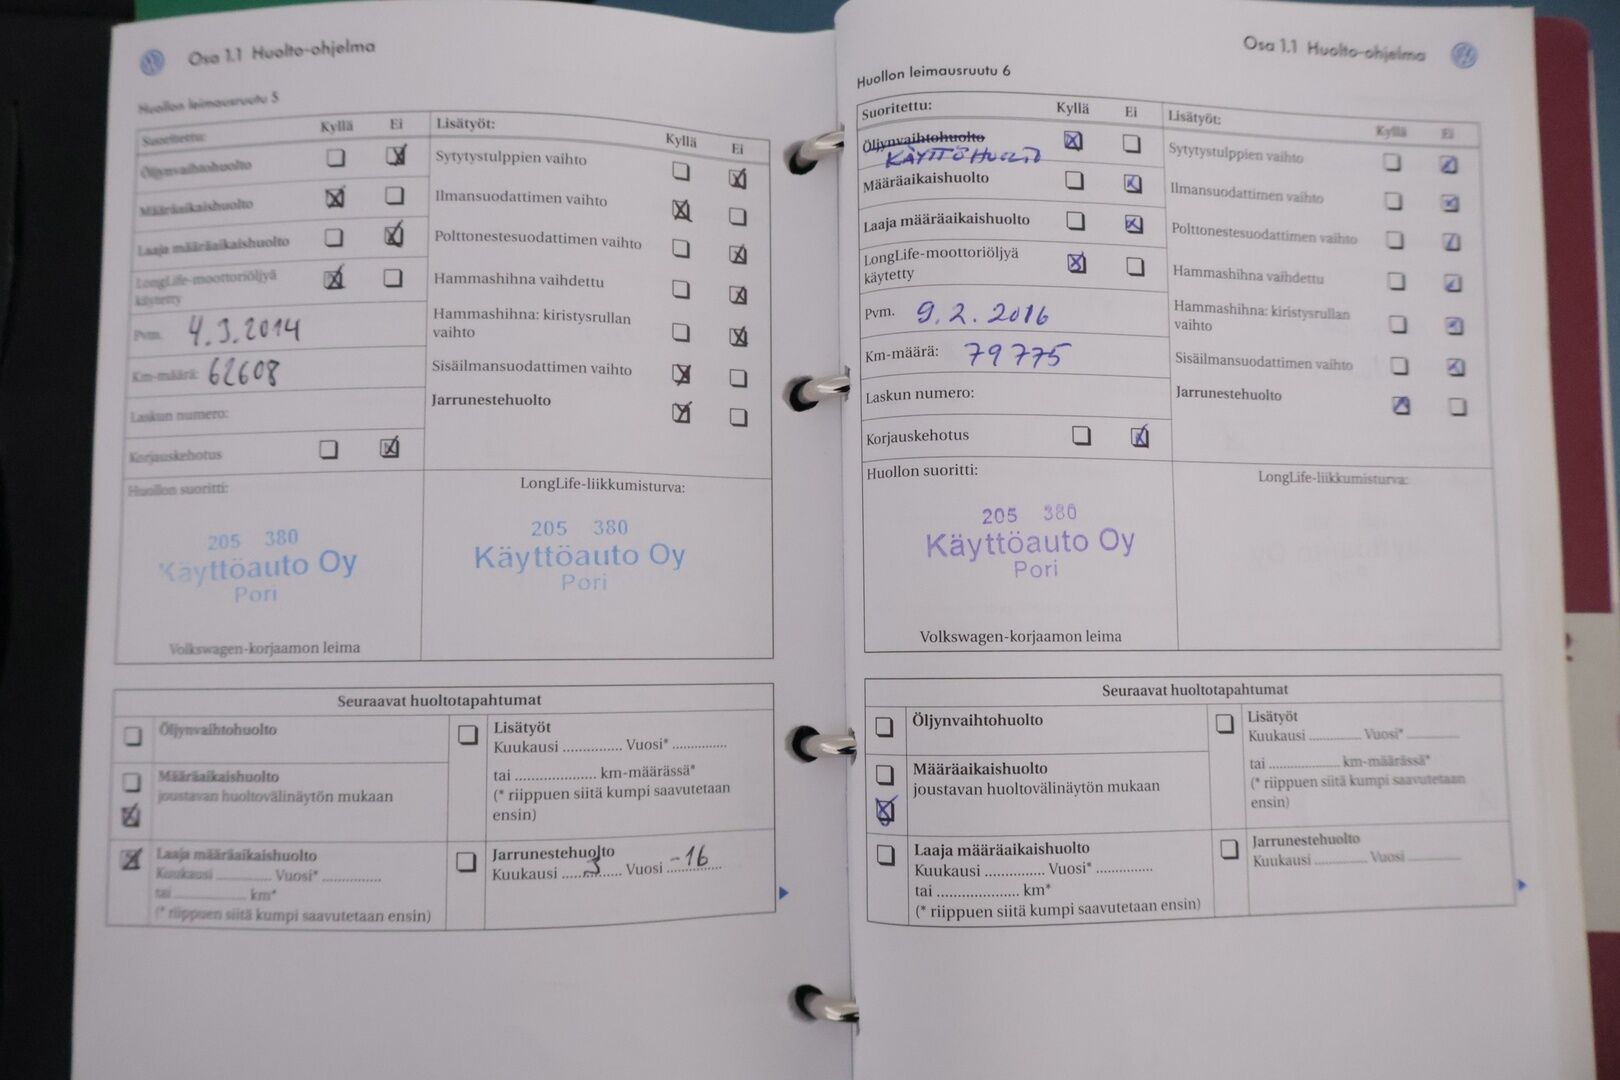 Osa 1.1 Huolto-ohjelma
Huollon leimausruutu 5
Suoritettu: Kyllä Ei
Öljynvaihtohuolto
Määräaikaishuolto
Laaja määräaikaishuolto
LongLife-moottoriöljyä
käytetty
Pvm. 4.3.2014
Km-määrä: 62608
Laskun numero:
Korjauskehotus
Lisätyöt: Kyllä Ei
Sytytystulppien vaihto
Ilmansuodattimen vaihto
Polttonestesuodattimen vaihto
Hammashihna vaihdettu
Hammashihna: kiristysrullan
vaihto
Sisäilmansuodattimen vaihto
Jarrunestehuolto
Huollon suoritti:
205 380
Käyttöauto Oy
Pori
Volkswagen-korjaamon leima
LongLife-liikkumisturva:
205 380
Käyttöauto Oy
Pori
Seuraavat huoltotapahtumat
Öljynvaihtohuolto
Määräaikaishuolto
joustavan huoltovälinäytön mukaan
Laaja määräaikaishuolto
Kuukausi .............. Vuosi* ..............
tai .................... km*
(* riippuen siitä kumpi saavutetaan ensin)
Lisätyöt
Kuukausi .............. Vuosi* .............
tai .................... km-määrässä*
(* riippuen siitä kumpi saavutetaan
ensin)
Jarrunestehuolto
Kuukausi ....3.... Vuosi -16
Osa 1.1 Huolto-ohjelma
Huollon leimausruutu 6
Suoritettu: Kyllä Ei
Öljynvaihtohuolto
KÄYTTÖHUOLTO
Määräaikaishuolto
Laaja määräaikaishuolto
LongLife-moottoriöljyä
käytetty
Pvm. 9.2.2016
Km-määrä: 79775
Laskun numero:
Korjauskehotus
Lisätyöt: Kyllä Ei
Sytytystulppien vaihto
Ilmansuodattimen vaihto
Polttonestesuodattimen vaihto
Hammashihna vaihdettu
Hammashihna: kiristysrullan
vaihto
Sisäilmansuodattimen vaihto
Jarrunestehuolto
Huollon suoritti:
205 380
Käyttöauto Oy
Pori
Volkswagen-korjaamon leima
LongLife-liikkumisturva:
Seuraavat huoltotapahtumat
Öljynvaihtohuolto
Määräaikaishuolto
joustavan huoltovälinäytön mukaan
Laaja määräaikaishuolto
Kuukausi .............. Vuosi* .............
tai .................... km*
(* riippuen siitä kumpi saavutetaan ensin)
Lisätyöt
Kuukausi ............. Vuosi* .............
tai .................... km-määrässä*
(* riippuen siitä kumpi saavutetaan
ensin)
Jarrunestehuolto
Kuukausi .............. Vuosi .............